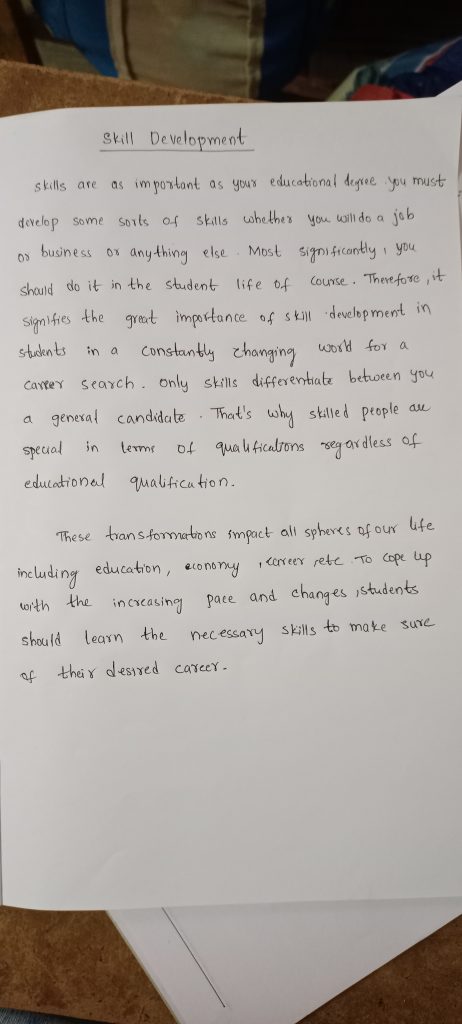 Skill Development
Skills are as important as your educational degree. you must
develop some sorts of skills whether you will do a job
or business or anything else. Most significantly, you
should do it in the student life of course. Therefore, it
signifies the great importance of skill development in
students in a constantly changing world for a
career search. only skills differentiate between you
a general candidate. That's why skilled people are
special in terms of qualifications regardless of
educational qualification.
These transformations impact all spheres of our life
including education, economy, career, etc. To cope up
with the increasing pace and changes, students
should learn the necessary skills to make sure
of their desired career.